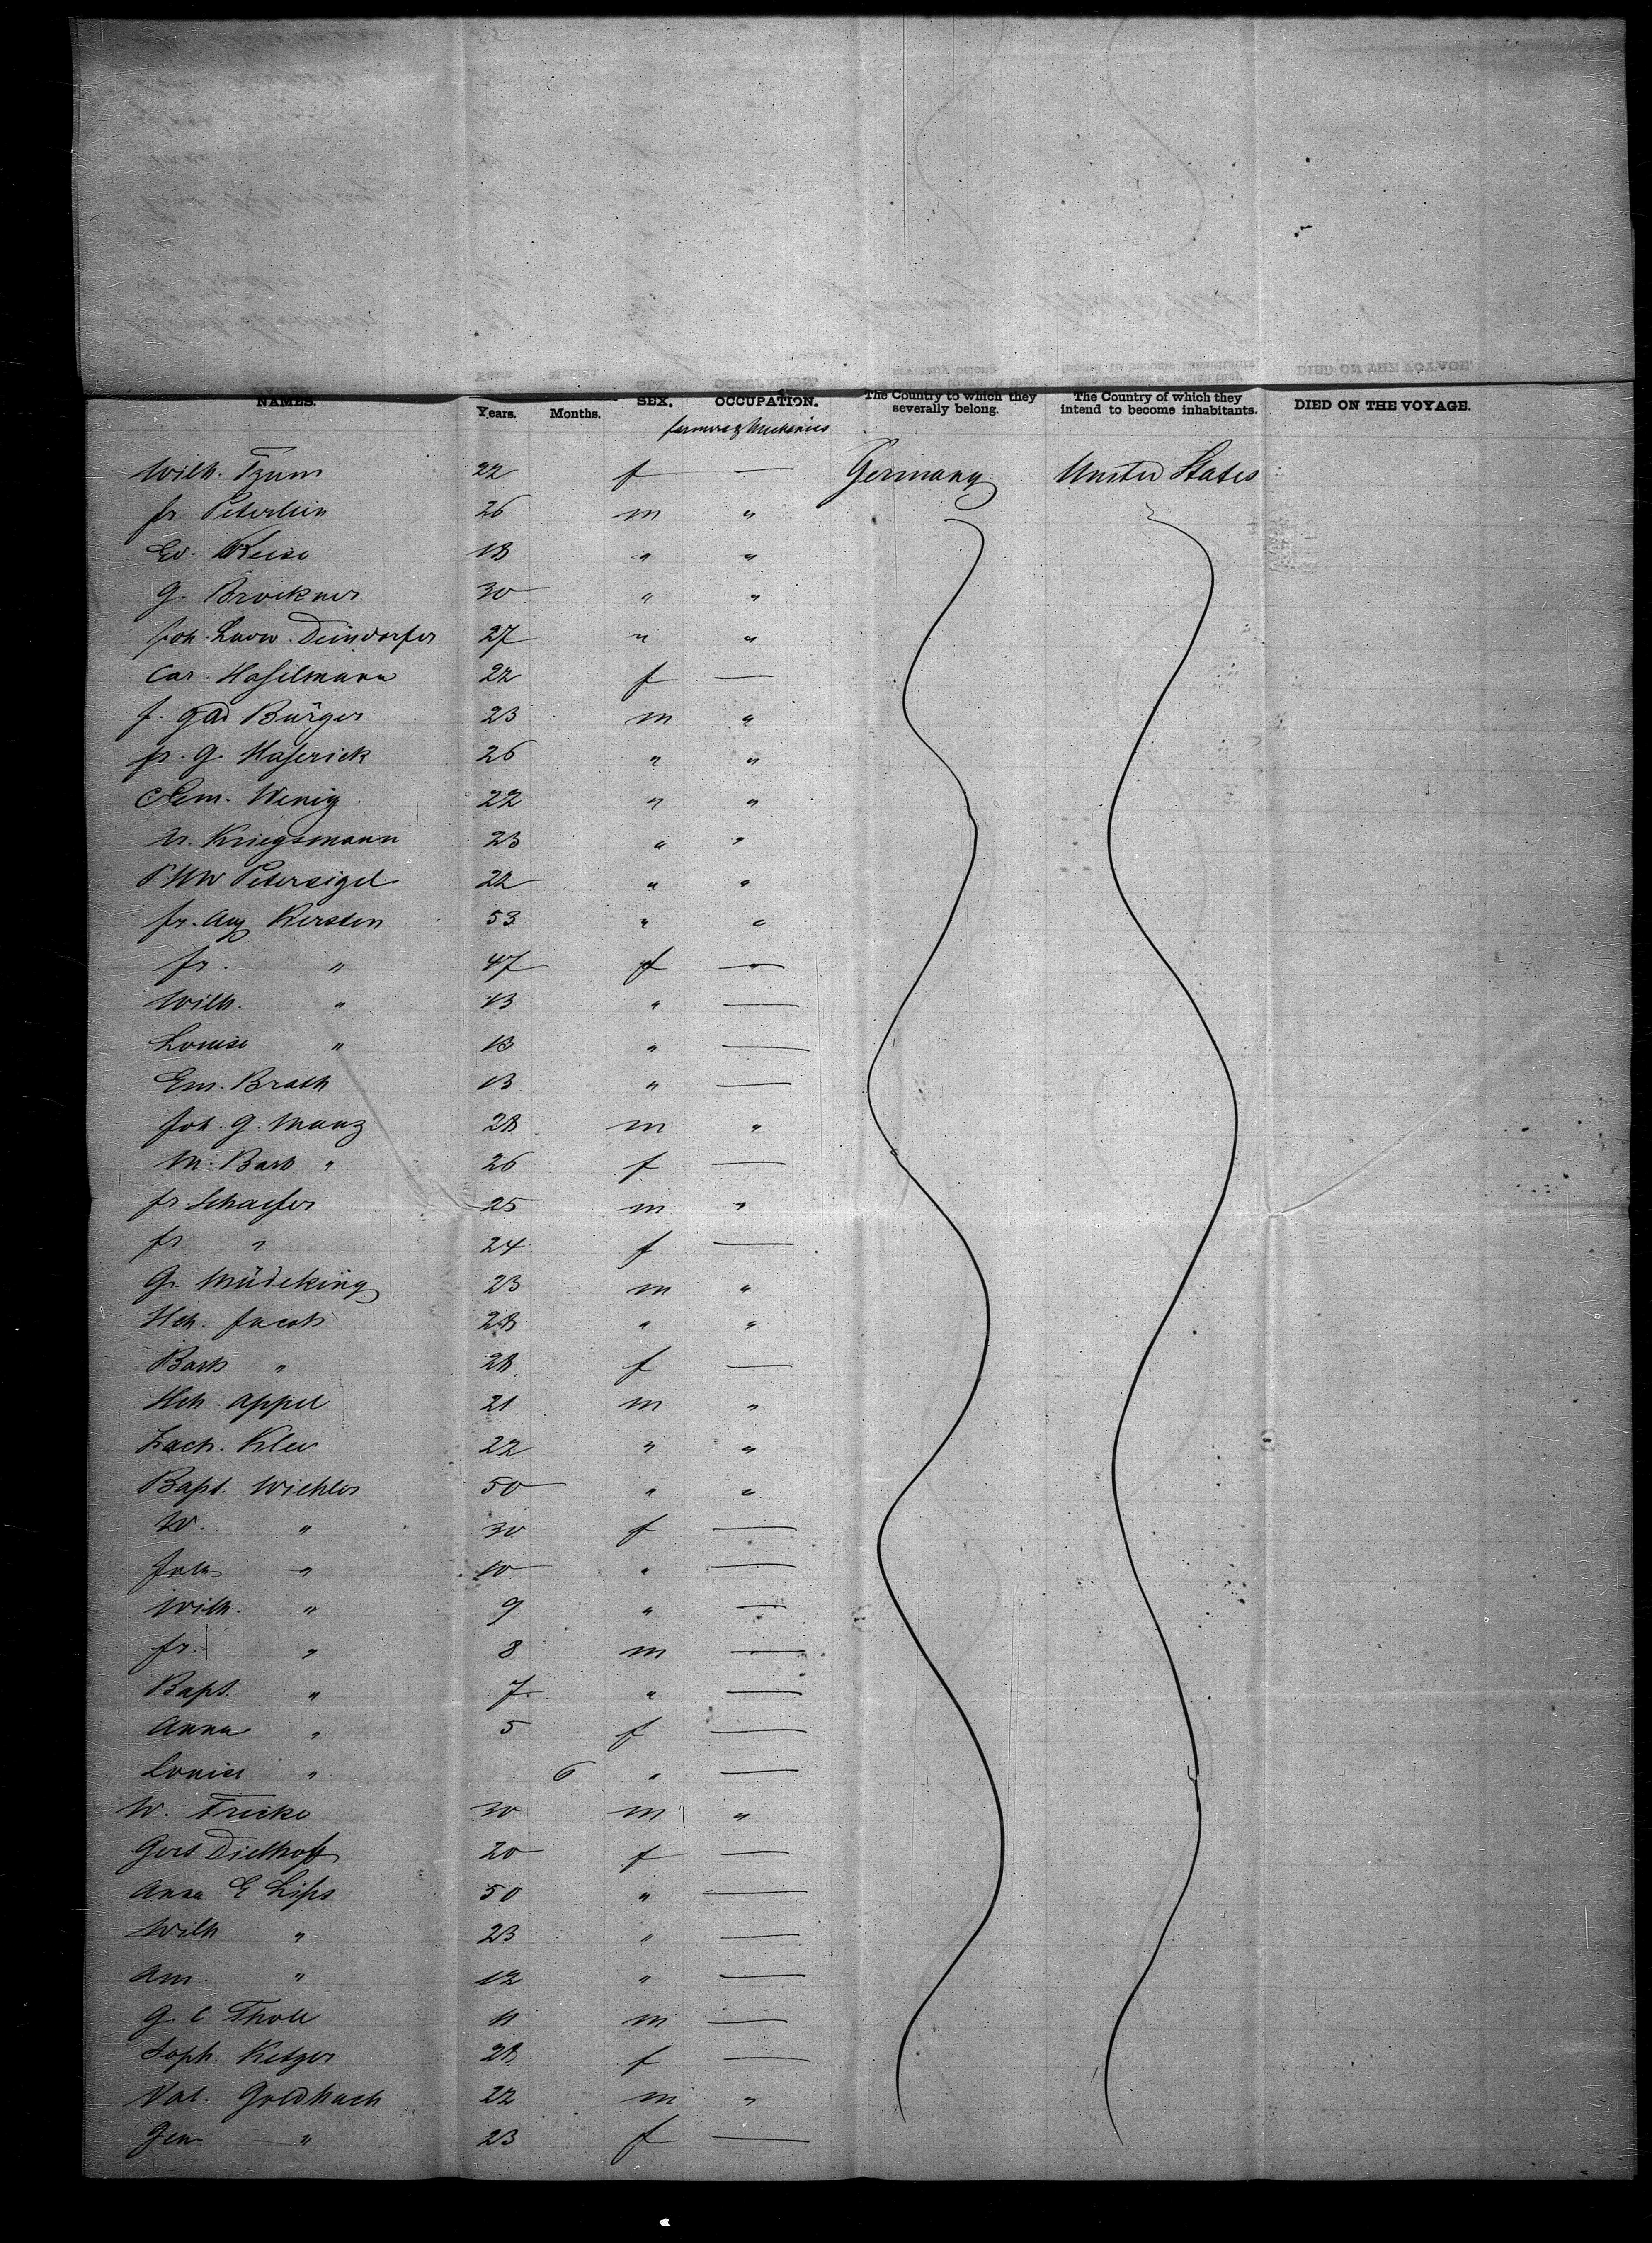 NAMES. Years. Months. SEX. OCCUPATION. The Country to which they severally belong. The Country of which they intend to become inhabitants. DIED ON THE VOYAGE.
farmers & Mechanics
Wilh. 22 f — Germany United States
fr 26 m "
Ed. 18 " "
G. Brockner 30 " "
Joh. Ludw. Deindorfer 27 " "
Car. Haselmann 22 f —
f. Bürger 23 m "
fr. G. Haserick 26 " "
Clem. Wenig 22 " "
Kriegsmann 23 " "
Petersigel 22 " "
fr. Aug Kersten 53 " "
fr. " 47 f —
Wilh. " 13 " —
Louise " 13 " —
Em. Brath 13 " —
Joh. G. Manz 28 m "
M. Barb " 26 f —
fr Schaefer 25 m "
fr " 24 f —
G. Müdeking 23 m "
Hch. Jacob 28 " "
Barb " 28 f —
Hch. Appel 21 m "
Zach. Klee 22 " "
Bapt. Wiehler 50 " "
W. " 30 f —
" 10 " —
Wilh. " 9 " —
fr. " 8 m —
Bapt. " 7 " —
Anna " 5 f —
Louise " 6 " —
W. Fricke 30 m "
Gert Diethoff 20 f —
Anna E Lips 50 " —
Wilh " 23 " —
Am. " 12 " —
G. C Thole 11 m —
Soph. Ketzer 28 f —
Val. Goldbach 22 m "
" 23 f —